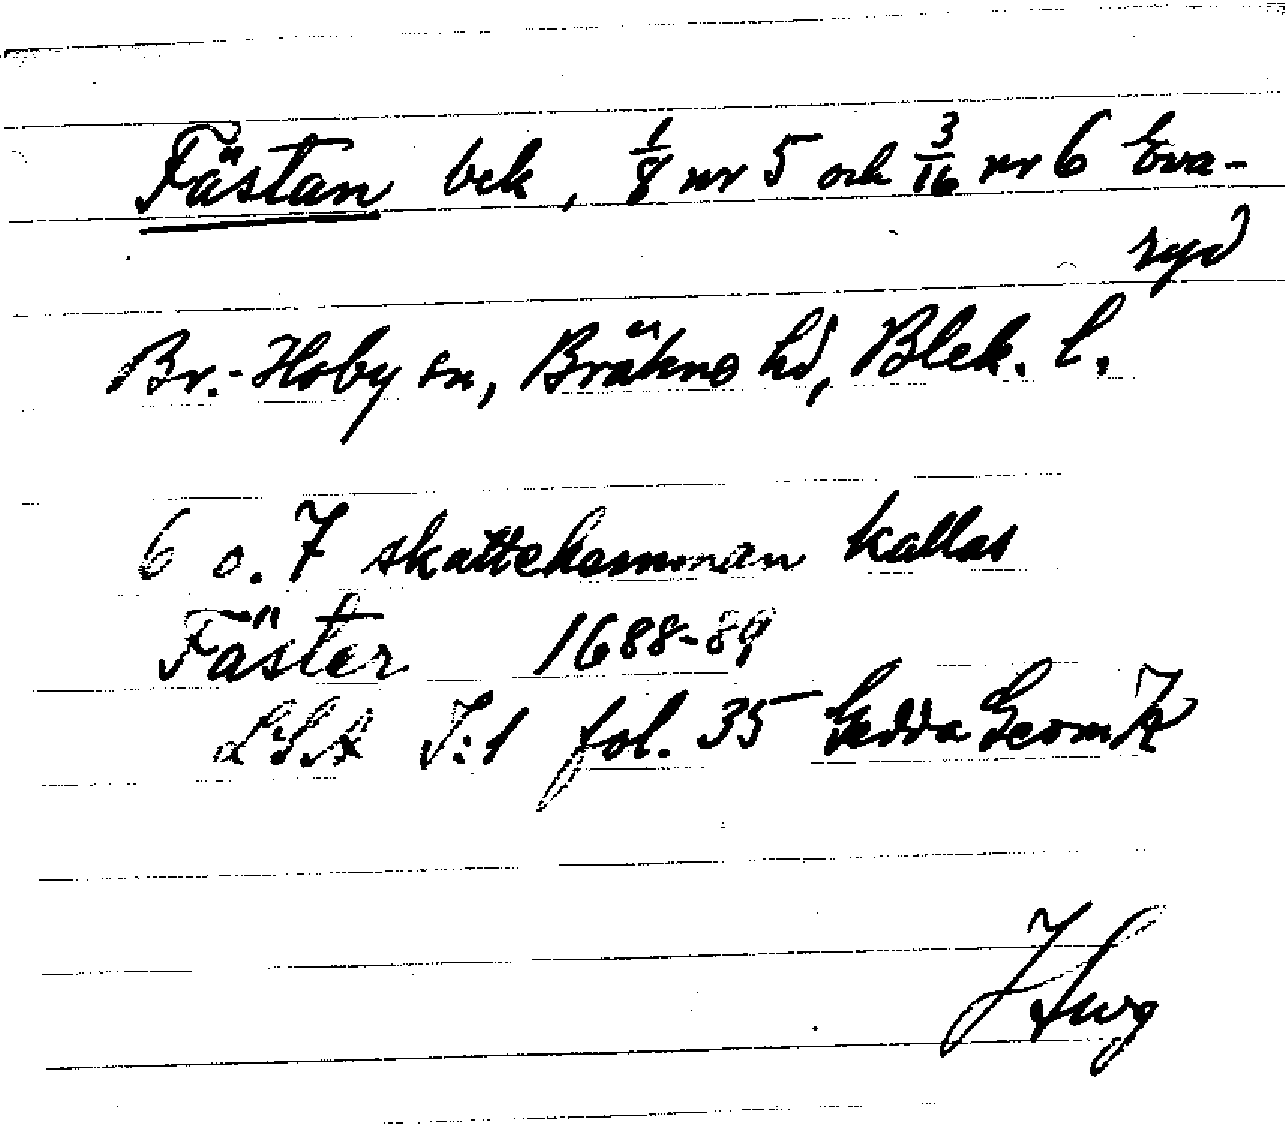 Fästan bek, 1/8 nr 5 och 3/16 nr 6 Eva-
ryd
Br.-Hoby sn, Bräkne hd, Blek. l.
6 o. 7 skattehemman kallas
Fäster 1688-89
LSA I:1 fol. 35 Gedda Geom